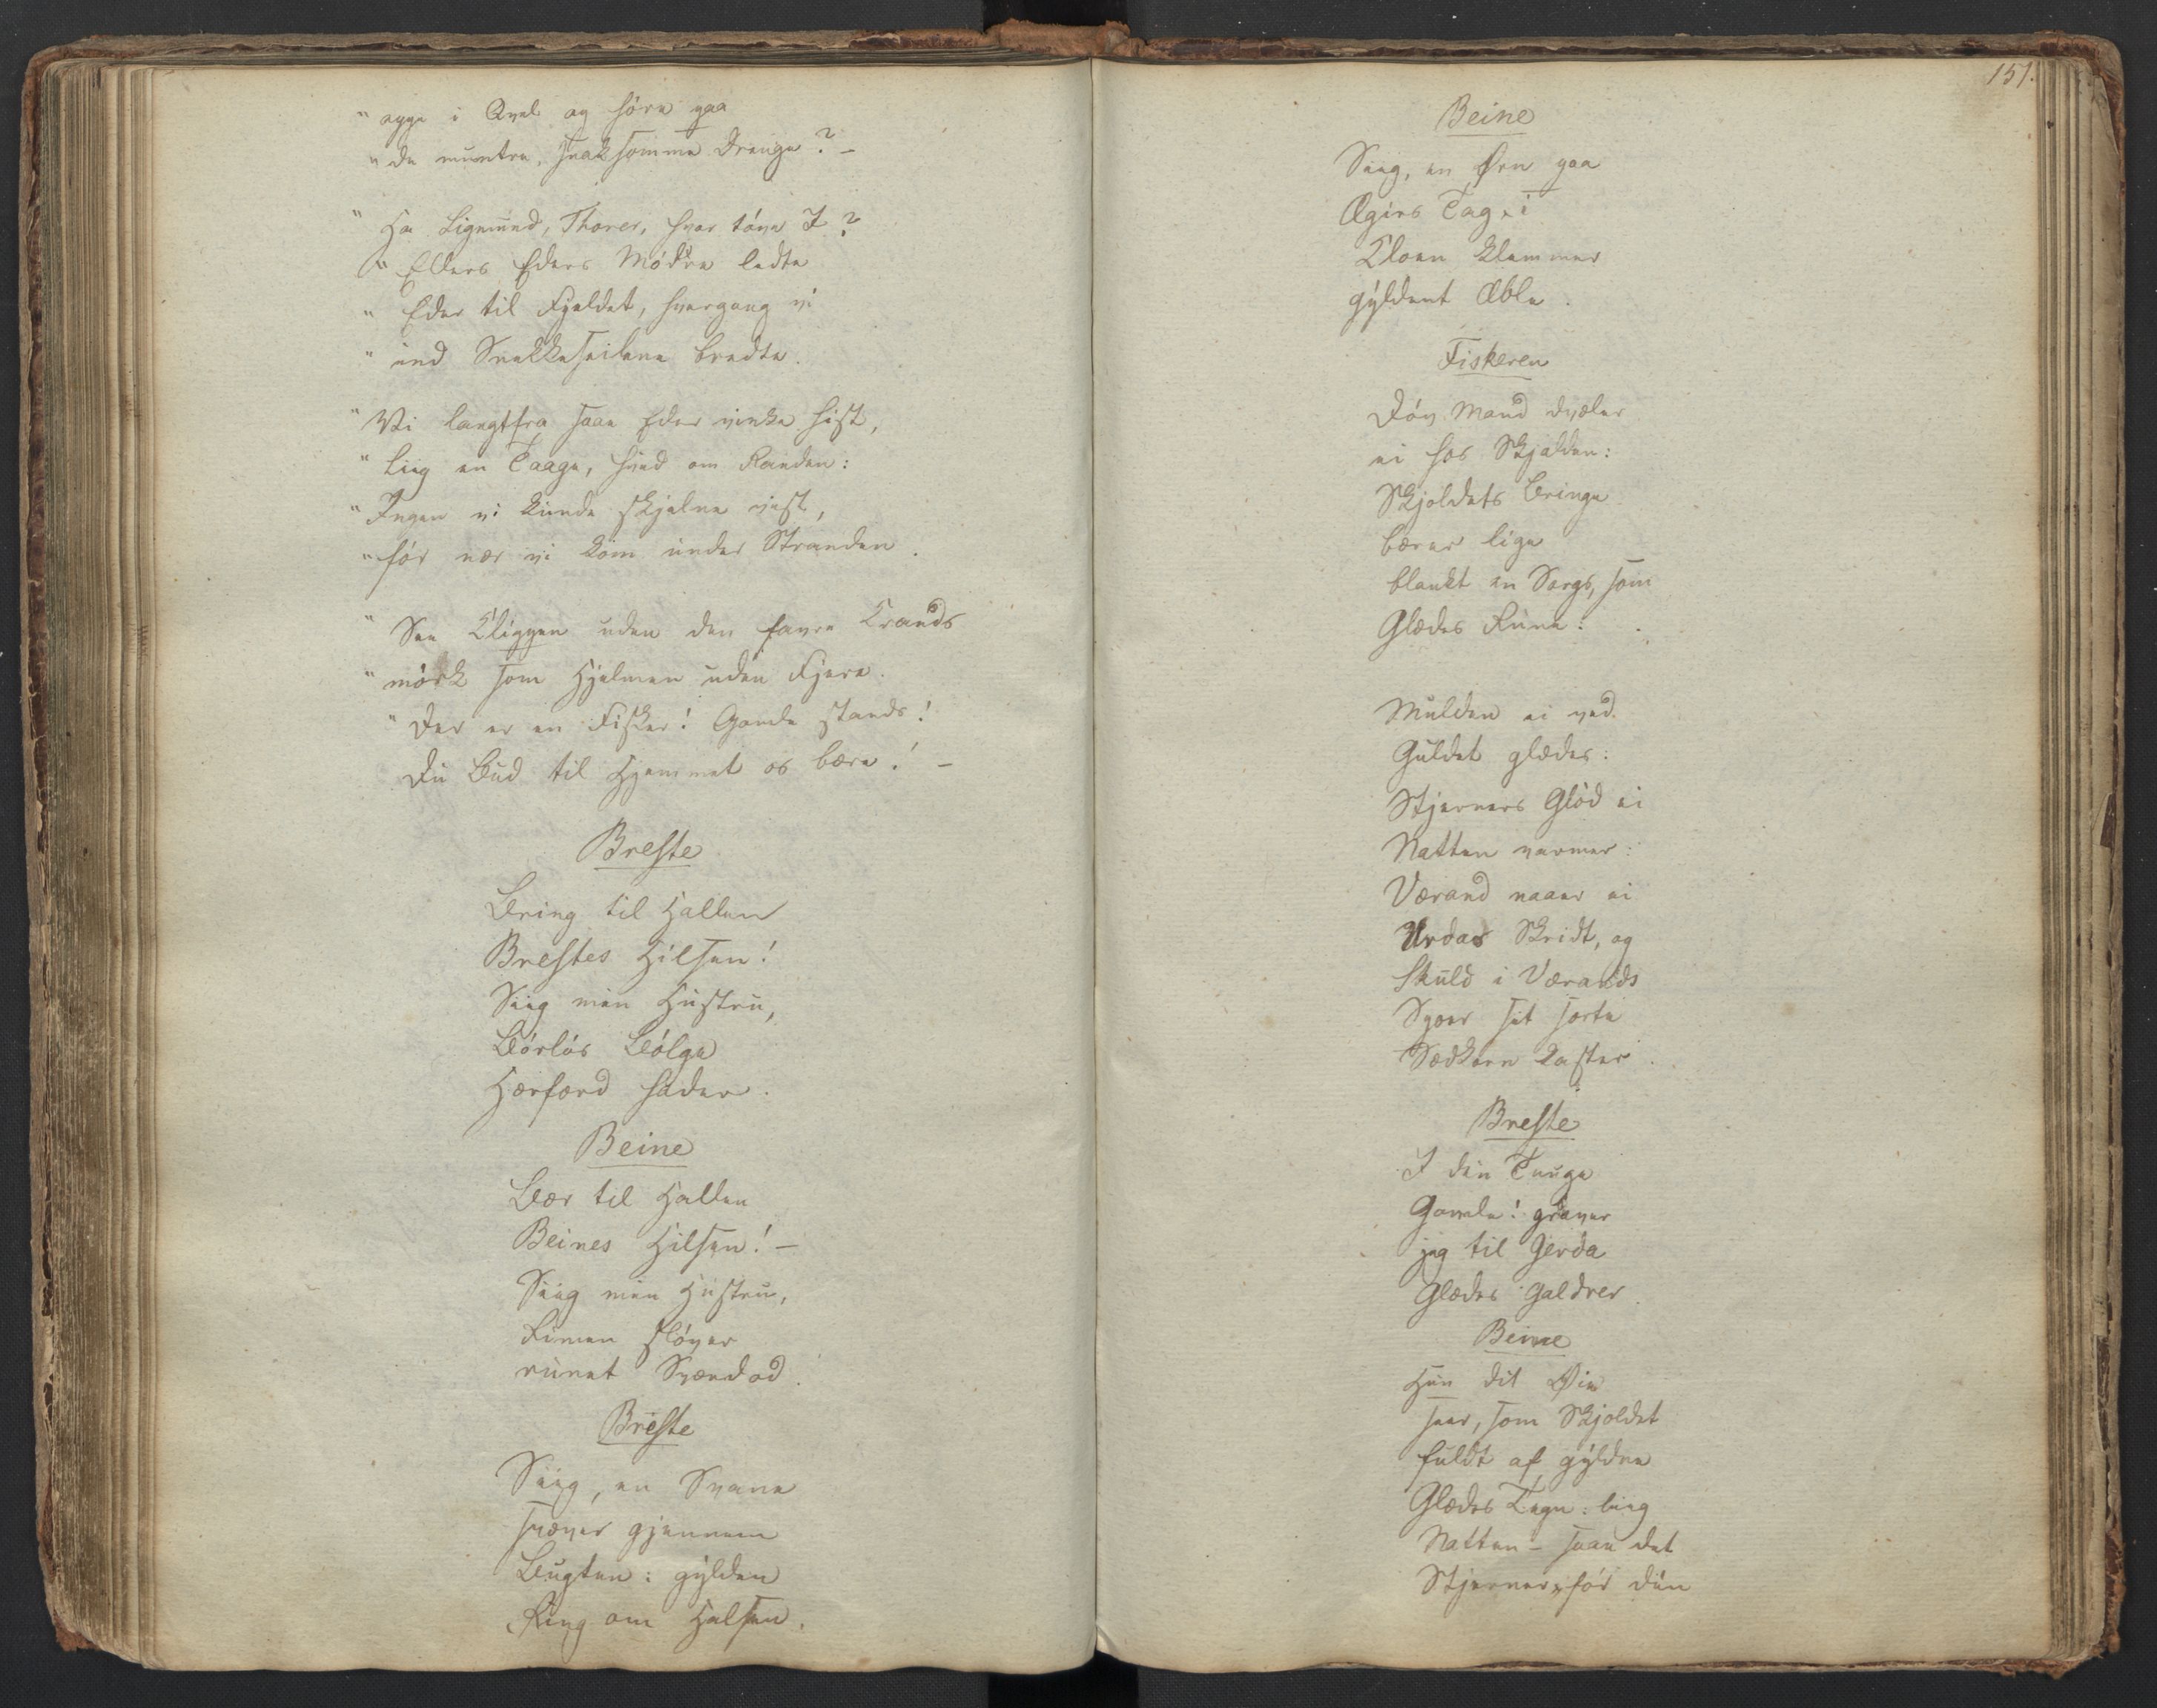 "oppe i Qvel og høre paa
"de muntre, snaksomme Drenge? –
"Ha Sigmund, Thorer, hvor tøve I?
"Ellers Eders Mødre ledte
"Eder til Fjeldet, hvergang vi
"ind Snekkeseilene bredte.
"Vi langtfra saae Eder vinke hist,
"Liig en Taage, hvid om Randen:
"Ingen vi kunde skjelne vist,
"før nær vi kom under Stranden.
"See Klippen uden den favre Krands
"mørk som Hjelmen uden Fjere.
"Der er en Fisker! Gamle stands!
Du Bud til Hjemmet os bære! –
Breste
Bring til Hallen
Brestes Hilsen!
Siig min Hustru,
Børløs Bølge
Hærfærd hader.
Beine
Bær til Hallen
Beines Hilsen! –
Siig min Hustru,
Rimen sløver
runet Sværdod.
Breste
Siig, en Svane
svæver gjennem
Bugten: gylden
Ring om Halsen.
151.
Beine
Siig, en Ørn paa
Ægirs Tag: i
Kloen klemmer
gyldent Æble.
Fiskeren
Døv Mand dvæler
ei hos Skjalden:
Skjoldets Bringe
bærer lige
blankt en Sorgs, som
Glædes Rune:
Mulden ei ved
Guldet glædes:
Stjerners Glød ei
Natten varmer:
Værand naaer ei
Urdas Skridt, og
Skuld i Værands
Spoer sit sorte
Sædkorn kaster.
Breste
I din Tunge
Gamle! graver
jeg til Gerda
Glædes Galdrer.
Beine
Hun dit Øie
seer, som Skjoldet
fuldt af gyldne
Glædes Tegn: liig
Natten – saae det
Stjerner, før din